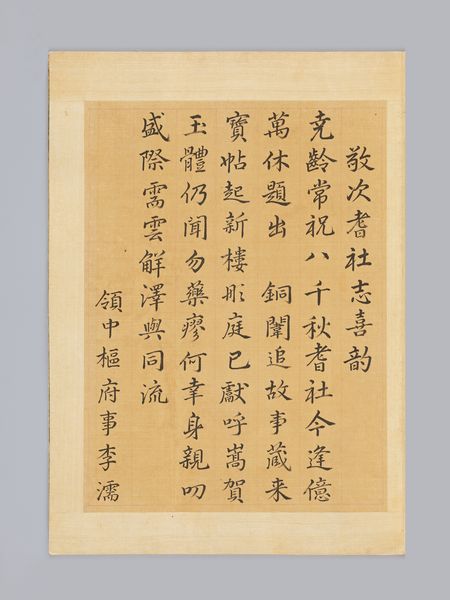 敬次耆社志喜韵
尭齡常祝八千秋耆社今逢億
萬休題出 銅闈追故事蔵来
寶帖起新樓彤庭已獻呼嵩賀
玉體仍聞勿藥瘳何幸身親叨
盛際需雲觧澤與同流
領中樞府事李濡